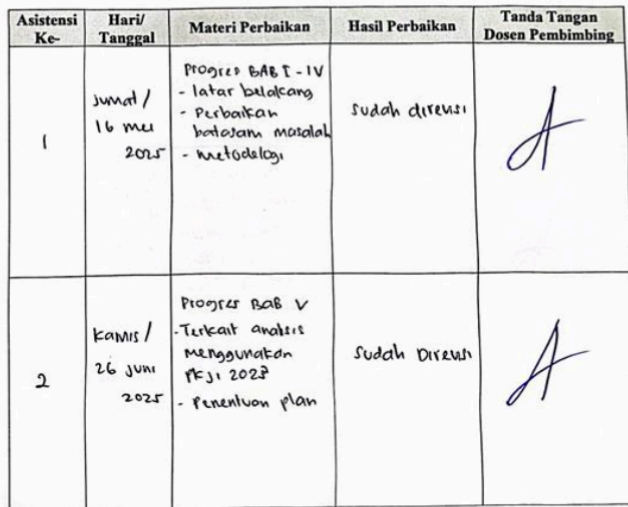 Asistensi Ke-
Hari/ Tanggal
Materi Perbaikan
Hasil Perbaikan
Tanda Tangan Dosen Pembimbing
1
Jumat /
16 mei
2025
Progres BAB I - IV
- latar belakang
- Perbaikan
batasam masalah
- metodelogi
sudah direvisi
2
Kamis /
26 Juni
2025
Progres BAB V
- Terkait analisis
menggunakan
PKJI 2023
- Penentuan plan
Sudah Direvisi